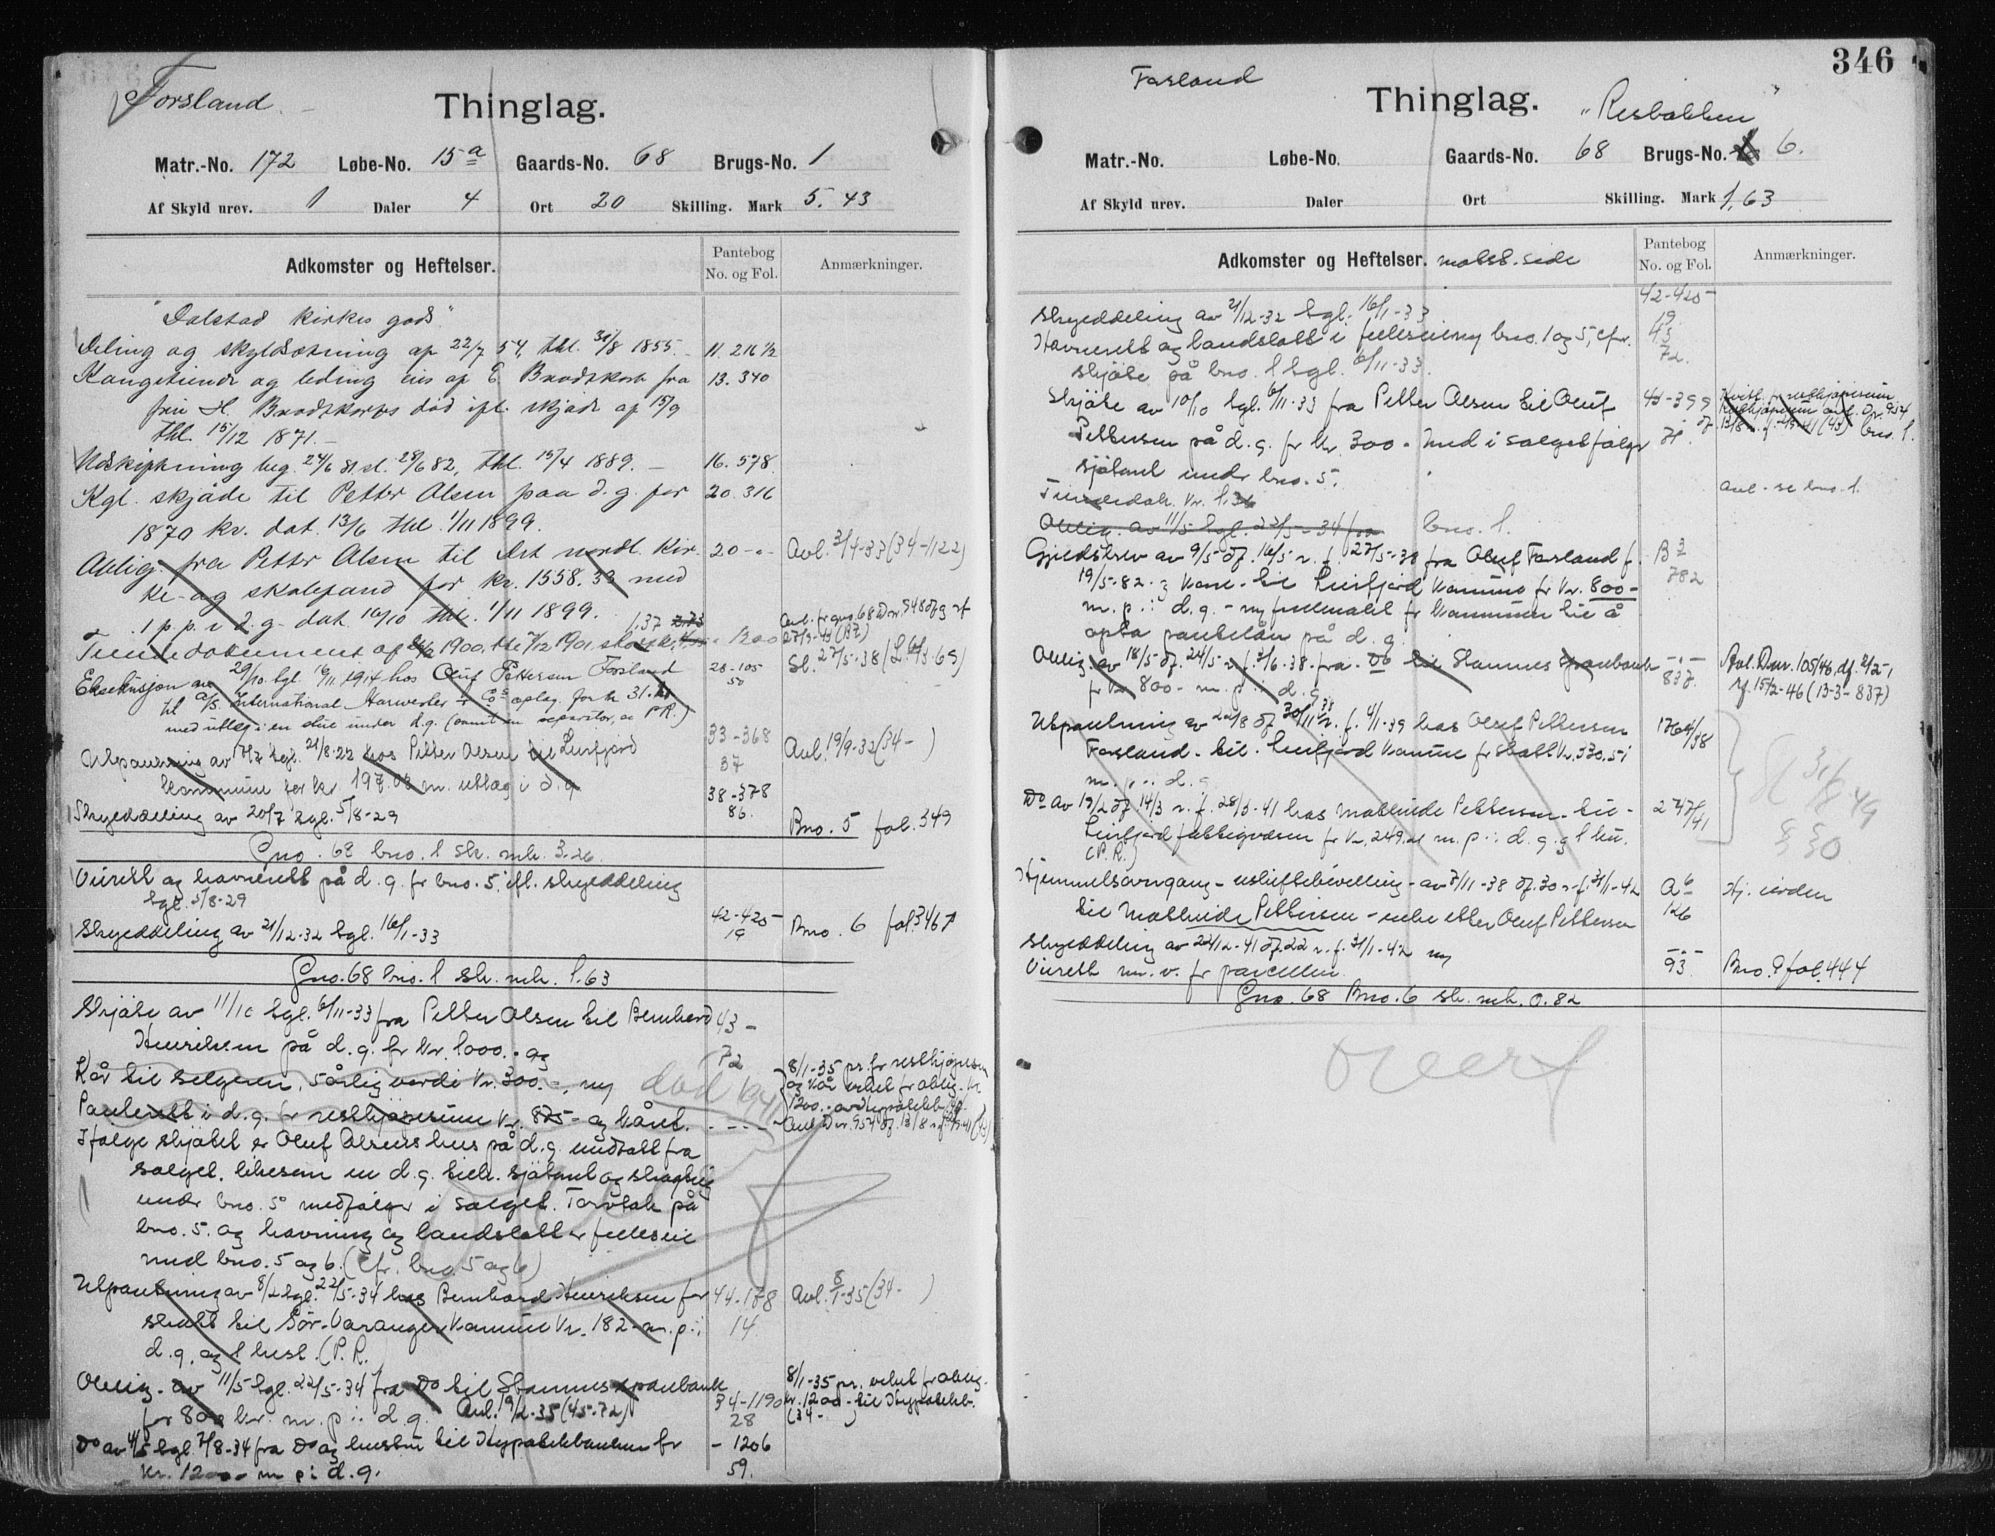 Forsland
Thinglag.
Matr.-No. 172 Løbe-No. 15a Gaards-No. 68 Brugs-No. 1
Af Skyld urev. 1 Daler 4 Ort 20 Skilling. Mark 5.43
Adkomster og Heftelser.
Pantebog No. og Fol.
Anmærkninger.
"Dalstad kirkes gods"
Deling og skyldsætning af 22/7 54, thl. 31/8 1855. 11. 216 1/2
Kongetiende og leding eies af E. Brodtkorb fra 13. 340
fru H. Brodtkorbs død ifl. skjøde af 15/9
thl. 15/12 1871.
Udskiftning beg. 24/6 81 sl. 28/6 82, thl. 15/4 1889. 16. 578
Kgl. skjøde til Petter Olsen paa d. g. for 20. 316
1870 kr. dat. 13/6 thl. 1/11 1899.
Oblig. fra Petter Olsen til Det nordl. kir- 20 -"- Avl. 3/4-33 (34-1122)
ke- og skolefond for kr. 1558.33 med
1 p. p. i d. g. dat. 16/10 thl. 1/11 1899.
Tiendedokument
Eksekusjon av 29/10 tgl. 16/11 1914 hos Oluf Pettersen Forsland 28-105 50
til A/S International Harvester Co
med utlæg i en slue under d. g.
Utpantning av tgl. 21/8-22 hos Petter Olsen til Leirfjord 33-368 37 Avl. 19/9-32 (34- )
kommune for kr. m. utlæg i d. g. 38-378
Skylddeling av 20/7 tgl. 5/8-29 86. Bno. 5 fol. 349
Gno. 68 bno. 1 sk. mk. 3.26
Veirett og havnerett på d. g. fr bno. 5, ifl. skylddeling
tgl. 5/8-29
Skylddeling av 21/12-32 tgl. 16/1-33 42-420 19 Bno. 6 fol. 346
Gno. 68 bno. 1 sk. mk. 1.63
Skjöte av 11/10 tgl. 6/11-33 fra Petter Olsen til Bernhard 43-
Henriksen på d. g. fr kr. 1000.- og 72
Kår til selgeren, 5årlig verdi kr. 300.-, ny död 1941
Panterett i d. g. fr restkjøpesum kr. 875- og kåret.
8/1-35 pr. fr restkjøpesum
og kår veket fr oblig. kr.
1200.- av Hypotekb.
Ifølge skjøtet er Oluf Olsens hus på d. g. undtatt fra
salget, likesom en d. g. tilh. sjøtomt og
under bno. 5 medfølger i salget. Torvtak på
bno. 5 og havning og landslott er felleseie
med bno. 5 og 6. (cfr. bno. 5 og 6)
Utpantning av 8/2 tgl. 22/5-34 hos Bernhard Henriksen for 44-178 Avl. 8/1-35 (34- )
skatt til Sør-Varanger komune kr. 182- m. p. i 14.
d. g. og 1 hest. (P. R.)
Oblig. av 11/5 tgl. 22/5-34 fra Do til Stamnes sparebank 34-1190 8/1-35 pr. veket fr oblig.
for 800 kr. m. p. i d. g. Avl. 19/2-35 (45-72) 28 kr. 1200- til Hypotekb.
Do av 4/5 tgl. 7/8-34 fra Do og hustru til Hypotekbanken fr - 1206
kr. 1200.- m p i d. g. 59.
346
Forsland
Thinglag.
"Resbakken"
Matr.-No. Løbe-No. Gaards-No. 68 Brugs-No. 6.
Af Skyld urev. Daler Ort Skilling. Mark 1,63
Adkomster og Heftelser. motst. side
Pantebog No. og Fol.
Anmærkninger.
Skylddeling av 21/12-32 tgl. 16/1-33 42-420- 19
Havnerett og landslott i felleseie m/ bno. 1 og 5, cfr. 43
skjöte på bno. 1 tgl. 6/11-33. 72.
Skjöte av 10/10 tgl. 6/11-33 fra Petter Olsen til Oluf 43-399
Pettersen på d. g. fr kr. 300.- Med i salget følger 71.
sjötomt under bno. 5.
Tiendedok. kr. 1.36 Avl. - se bno. 1.
Oblig. av 11/5 tgl. 22/5-34 fra bno. 1.
Gjeldsbrev av 9/5 df. 16/5 r. f. 27/5-38 fra Oluf Forsland f. B 3
19/5-82 og kone - til Leirfjord komune fr kr. 800- 782
m. p. i d. g. - m/ fullmakt fr komunen til å
opta pantelån på d. g.
Oblig. av 18/5 df. 24/5 r. f. 3/6-38 fra Do til Stamnes sparebank -"- Avl. Dnr. 105/46, df. 2/2-,
fr kr. 800- m. p. i d. g. 837. rf. 15/2-46 (13-3-837)
Utpantning av 22/8 df. 30/11-38 r. f. 4/1-39 hos Oluf Pettersen 1764/38
Forsland - til Leirfjord komune fr skatt kr. 330.51
m. p. i d. g
Do av 19/2 df. 14/3 r. f. 28/3-41 hos Mathilde Pettersen - til - 247/41
Leirfjord fattigvesen fr kr. 249.21 m. p. i d. g. og 1 ku.
(P. R.)
Sl 31/8 49
§ 30
Hjemmelsovergang - uskiftebevilling - av 7/11-38 df. 30 r. f. 31/1-42 A 6 Hj. i orden
til Mathilde Pettersen - enke etter Oluf Pettersen 126
Skylddeling av 22/12-41 df. 22 r. f. 31/1-42 m/ -"-
Veirett m. v. fr parcellen. 93. Bno. 9 fol. 444
Gno. 68 Bno. 6 sk. mk. 0.82
overf